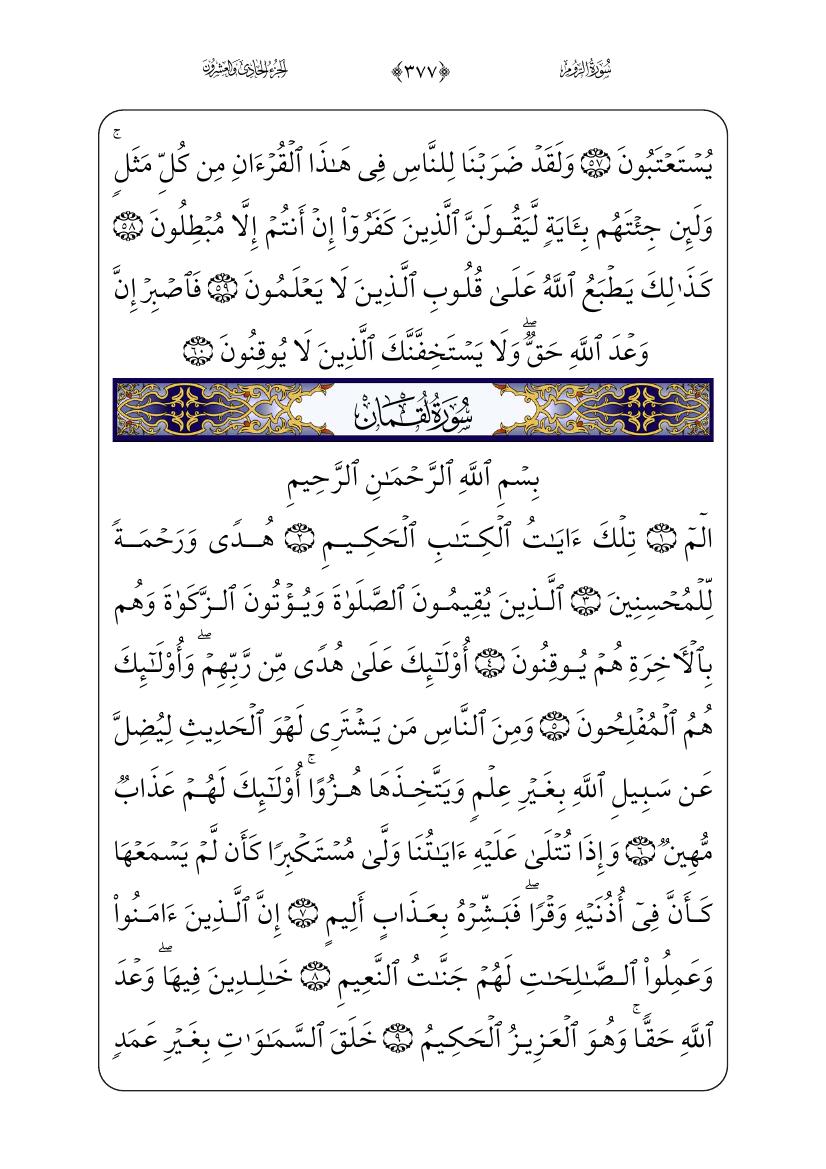 سُورَةُ الرُّومِ ﴿٣٧٧﴾ الجُزْءُ الحَادِي وَالعِشْرُونَ
يُسۡتَعۡتَبُونَ ٥٧ وَلَقَدۡ ضَرَبۡنَا لِلنَّاسِ فِى هَـٰذَا ٱلۡقُرۡءَانِ مِن كُلِّ مَثَلٍۚ
وَلَىِٕن جِئۡتَهُم بِـَٔايَةٍ لَّيَقُولَنَّ ٱلَّذِينَ كَفَرُوٓا۟ إِنۡ أَنتُمۡ إِلَّا مُبۡطِلُونَ ٥٨
كَذَٰلِكَ يَطۡبَعُ ٱللَّهُ عَلَىٰ قُلُوبِ ٱلَّذِينَ لَا يَعۡلَمُونَ ٥٩ فَٱصۡبِرۡ إِنَّ
وَعۡدَ ٱللَّهِ حَقࣱّۖ وَلَا يَسۡتَخِفَّنَّكَ ٱلَّذِينَ لَا يُوقِنُونَ ٦٠
سُورَةُ لُقۡمَان
بِسۡمِ ٱللَّهِ ٱلرَّحۡمَـٰنِ ٱلرَّحِيمِ
الٓمٓ ١ تِلۡكَ ءَايَـٰتُ ٱلۡكِتَـٰبِ ٱلۡحَكِيمِ ٢ هُدًى وَرَحۡمَةً
لِّلۡمُحۡسِنِينَ ٣ ٱلَّذِينَ يُقِيمُونَ ٱلصَّلَوٰةَ وَيُؤۡتُونَ ٱلزَّكَوٰةَ وَهُم
بِٱلۡـَٔاخِرَةِ هُمۡ يُوقِنُونَ ٤ أُو۟لَـٰۤىِٕكَ عَلَىٰ هُدًى مِّن رَّبِّهِمۡۖ وَأُو۟لَـٰۤىِٕكَ
هُمُ ٱلۡمُفۡلِحُونَ ٥ وَمِنَ ٱلنَّاسِ مَن يَشۡتَرِى لَهۡوَ ٱلۡحَدِيثِ لِيُضِلَّ
عَن سَبِيلِ ٱللَّهِ بِغَيۡرِ عِلۡمٍ وَيَتَّخِذَهَا هُزُوًاۚ أُو۟لَـٰۤىِٕكَ لَهُمۡ عَذَابࣱ
مُّهِينࣱ ٦ وَإِذَا تُتۡلَىٰ عَلَيۡهِ ءَايَـٰتُنَا وَلَّىٰ مُسۡتَكۡبِرًا كَأَن لَّمۡ يَسۡمَعۡهَا
كَأَنَّ فِىٓ أُذُنَيۡهِ وَقۡرًاۖ فَبَشِّرۡهُ بِعَذَابٍ أَلِيمٍ ٧ إِنَّ ٱلَّذِينَ ءَامَنُوا۟
وَعَمِلُوا۟ ٱلصَّـٰلِحَـٰتِ لَهُمۡ جَنَّـٰتُ ٱلنَّعِيمِ ٨ خَـٰلِدِينَ فِيهَاۖ وَعۡدَ
ٱللَّهِ حَقًّاۚ وَهُوَ ٱلۡعَزِيزُ ٱلۡحَكِيمُ ٩ خَلَقَ ٱلسَّمَـٰوَٰتِ بِغَيۡرِ عَمَدٍ